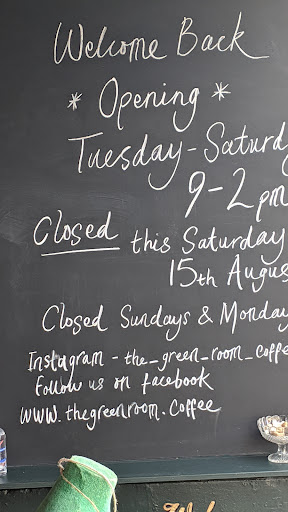 Welcome Back
* Opening *
Tuesday - Saturd
9-2pm
Closed this Saturday
15th Augus
Closed Sundays & Monday
Instagram - the_green_room_coffe
Follow us on facebook
www.thegreenroom.coffee